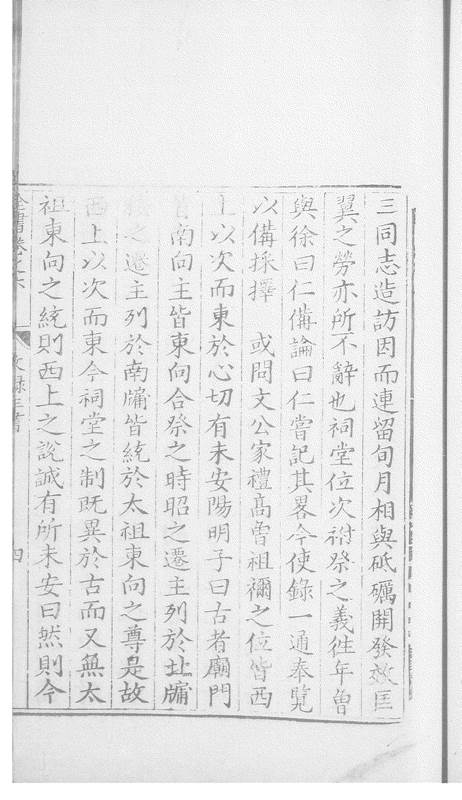 三同志造訪因而連留旬月相與砥礪開發效匡
翼之勞亦所不辭也祠堂位次祔祭之義徃年曾
與徐曰仁備論曰仁嘗記其畧今使錄一通奉覽
以備採擇　或問文公家禮高曾祖禰之位皆西
上以次而東於心切有未安陽明子曰古者廟門
皆南向主皆東向合祭之時昭之遷主列於北牖
穆之遷主列於南牖皆統於太祖東向之尊是故
西上以次而東今祠堂之制既異於古而又無太
祖東向之統則西上之說誠有所未安曰然則今
全書卷之六
文録三書
四